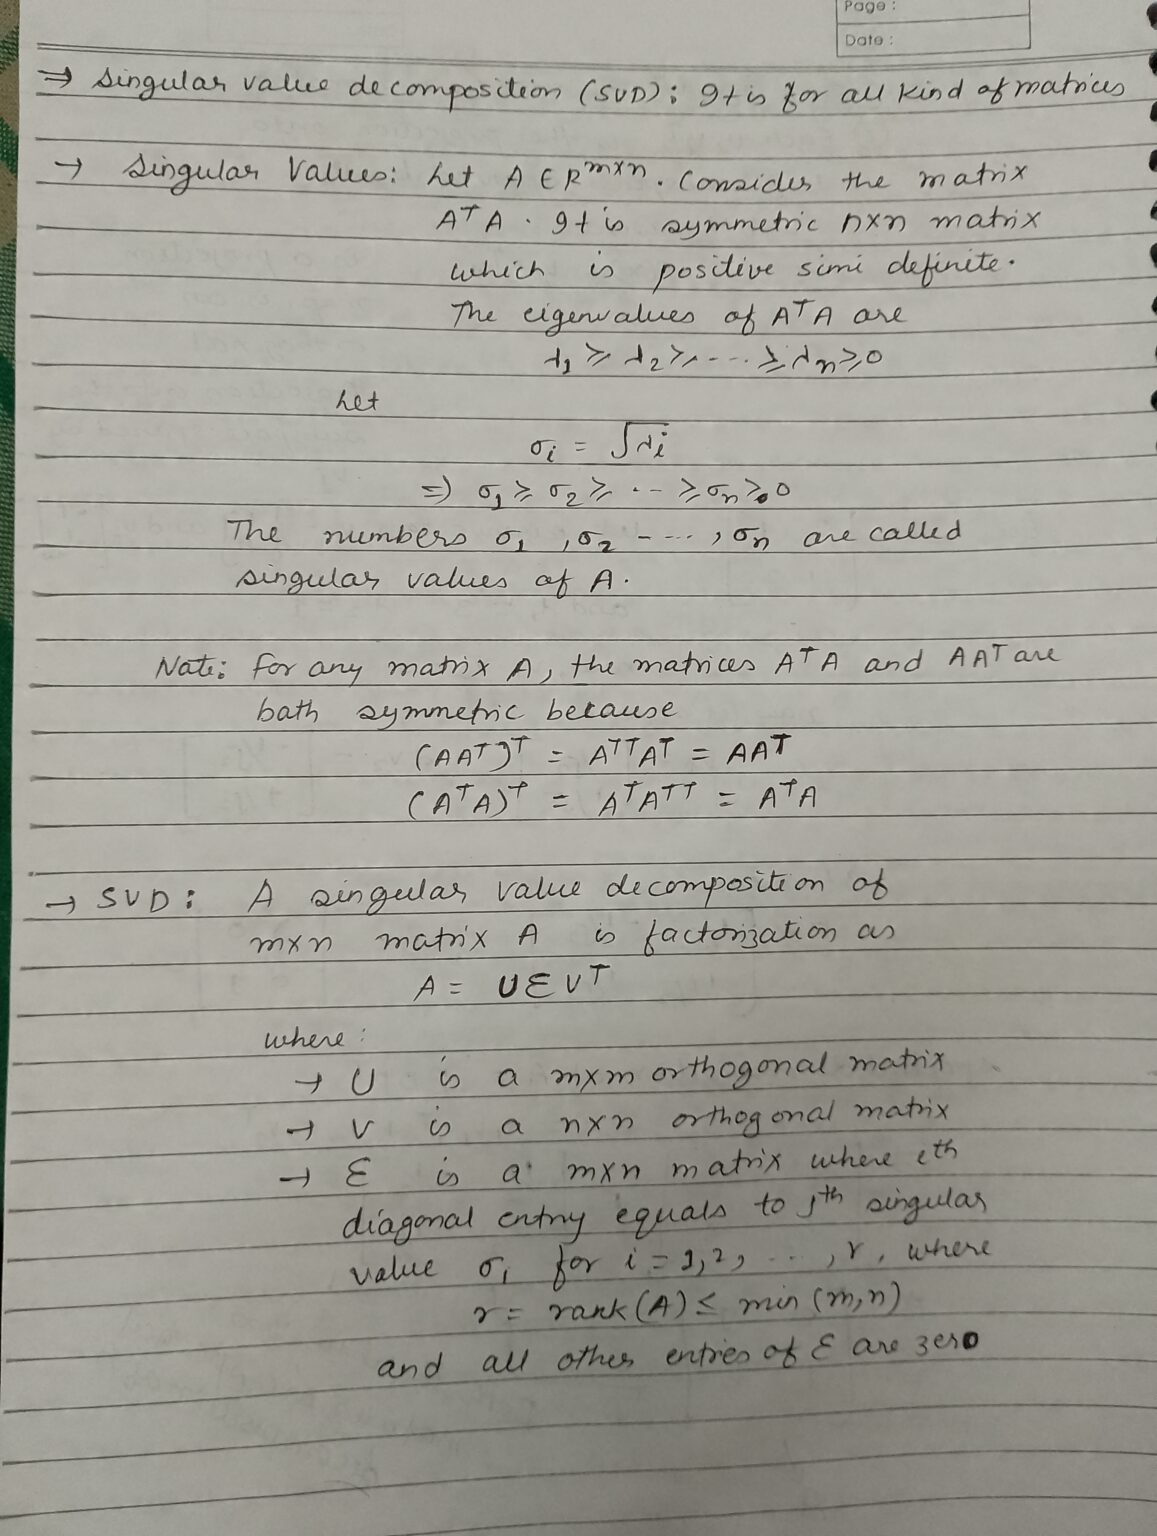 Page :
Date :
⇒ Singular value decomposition (SVD): It is for all kind of matrices
→ Singular Values: Let A ∈ R^{m×n}. Consider the matrix
A^T A. It is symmetric n×n matrix
which is positive simi definite.
The eigenvalues of A^T A are
λ_1 ≥ λ_2 ≥ ---- ≥ λ_n ≥ 0
Let
σ_i = √λ_i
⇒ σ_1 ≥ σ_2 ≥ --- ≥ σ_n ≥ 0
The numbers σ_1, σ_2 ----, σ_n are called
singular values of A.
Note: For any matrix A, the matrices A^T A and AA^T are
both symmetric because
(AA^T)^T = A^{TT}A^T = AA^T
(A^T A)^T = A^T A^{TT} = A^T A
→ SVD: A singular value decomposition of
m×n matrix A is factorization as
A = UΣV^T
where:
→ U is a m×m orthogonal matrix
→ V is a n×n orthogonal matrix
→ Σ is a m×n matrix where ith
diagonal entry equals to ith singular
value σ_i for i = 1, 2, ..., r, where
r = rank(A) ≤ min(m,n)
and all other entries of Σ are zero